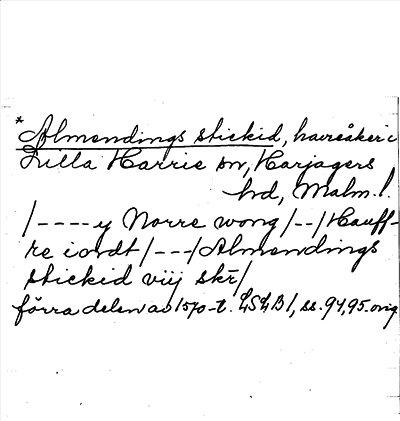 *Almendings stickid, havreåker i
Lilla Harrie sn, Harjagers
hd, Malm. l.
/----y Norre wong/--/Hauff-
re iordt/---/Almendings
stickid viij skr̄/
förra delen av 1570-t. LSLB1, ss. 94,95. orig